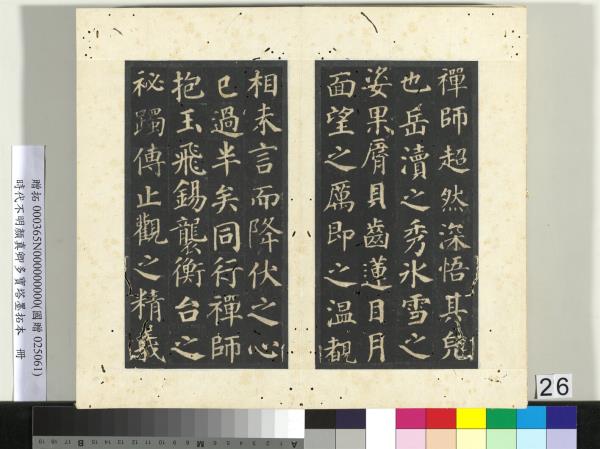 禪師超然深悟其皃
也岳瀆之秀冰雪之
姿果脣貝齒蓮目月
面望之厲即之温覩
相未言而降伏之心
已過半矣同行禪師
抱玉飛錫襲衡台之
祕躅傳止觀之精義
贈拓 000365N000000000(國贈 025061)
時代不明顏真卿多寶塔墨拓本 冊
26